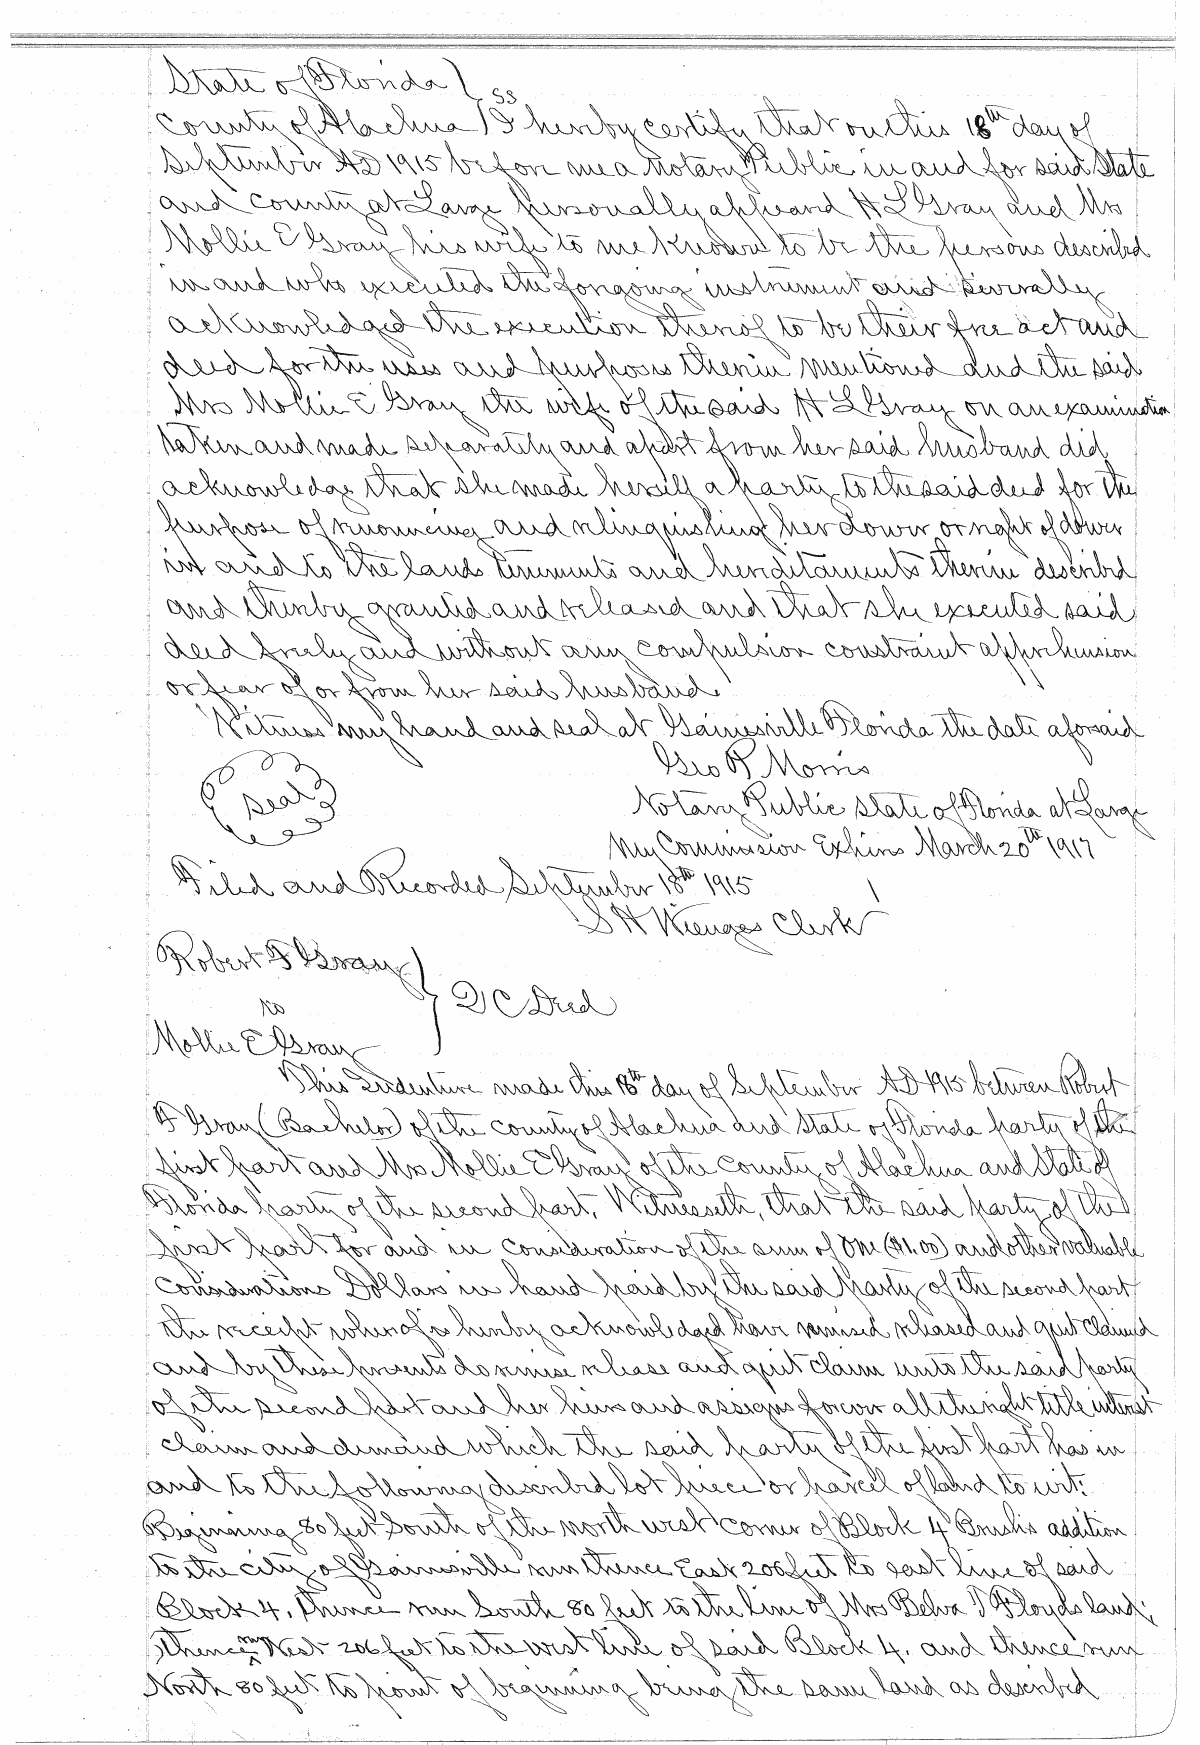 State of Florida } ss
County of Alachua } I hereby certify that on this 18th day of
September AD 1915 before me a Notary Public in and for said State
and county at Large personally appeard H L Gray and Mrs
Mollie E Gray his wife to me known to be the persons described
in and who executed the forgoing instrument and severally
acknowledged the execution thereof to be their free act and
deed for the uses and purposes therein mentioned and the said
Mrs Mollie E Gray the wife of the said H L Gray on an examination
taken and made separately and apart from her said husband did
acknowledge that she made herself a party to the said deed for the
purpose of renouncing and relinquishing her dower or right of dower
in and to the lands tenements and hereditaments therein described
and thereby granted and released and that she executed said
deed freely and without any compulsion constraint apprehension
or fear of or from her said husband.
Witness my hand and seal at Gainesville Florida the date aforsaid
Seal
Geo R Morris
Notary Public State of Florida at Large
My Commission Expires March 20th 1917
Filed and Recorded September 18th 1915
S H Wienges Clerk
Robert F Gray
to } Q C Deed
Mollie E Gray
This Indenture made this 18th day of September AD 1915 between Robert
F Gray (Bachelor) of the county of Alachua and State of Florida party of the
first part and Mrs Mollie E Gray of the County of Alachua and State of
Florida party of the second part, Witnesseth, that the said party of the
first part for and in consideration of the sum of One ($1.00) and other valuable
considerations Dollars in hand paid by the said party of the second part
the receipt whereof is hereby acknowledged have remised released and quit claimed
and by these presents do remise release and quit claim unto the said party
of the second part and her heirs and assigns forever all the right title interest
claim and demand which the said party of the first part has in
and to the following described lot piece or parcel of land to wit:
Beginning 80 feet South of the north west corner of Block 4 Brush's addition
to the city of Gainesville run thence East 206 feet to east line of said
Block 4, thence run South 80 feet to the line of Mrs Belva T Floyds land;
thence run West 206 feet to the west line of said Block 4, and thence run
North 80 feet to point of beginning being the same land as described